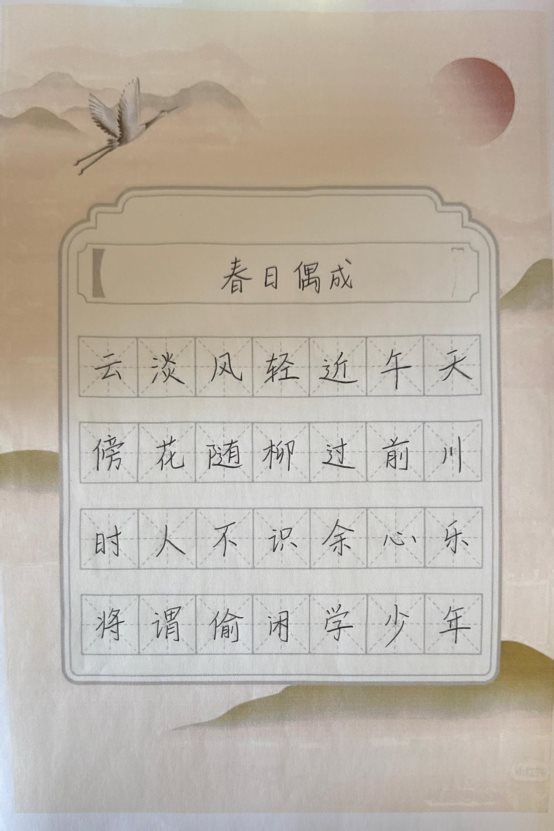 春日偶成
云淡风轻近午天
傍花随柳过前川
时人不识余心乐
将谓偷闲学少年